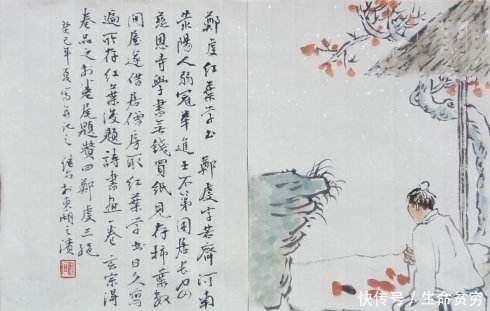 鄭虔紅葉學書 鄭虔字若齊河南
滎陽人弱冠舉進士不第困居長安
慈恩寺學書無錢買紙見存柿葉數
間屋遂借居僧房取紅葉學書日久寫
遍所存紅葉後題詩書画一卷玄宗得
卷品之於卷尾題贊曰鄭虔三絕
癸巳年夏寫并記之 於東湖之濱
快传号 / 生命贫穷